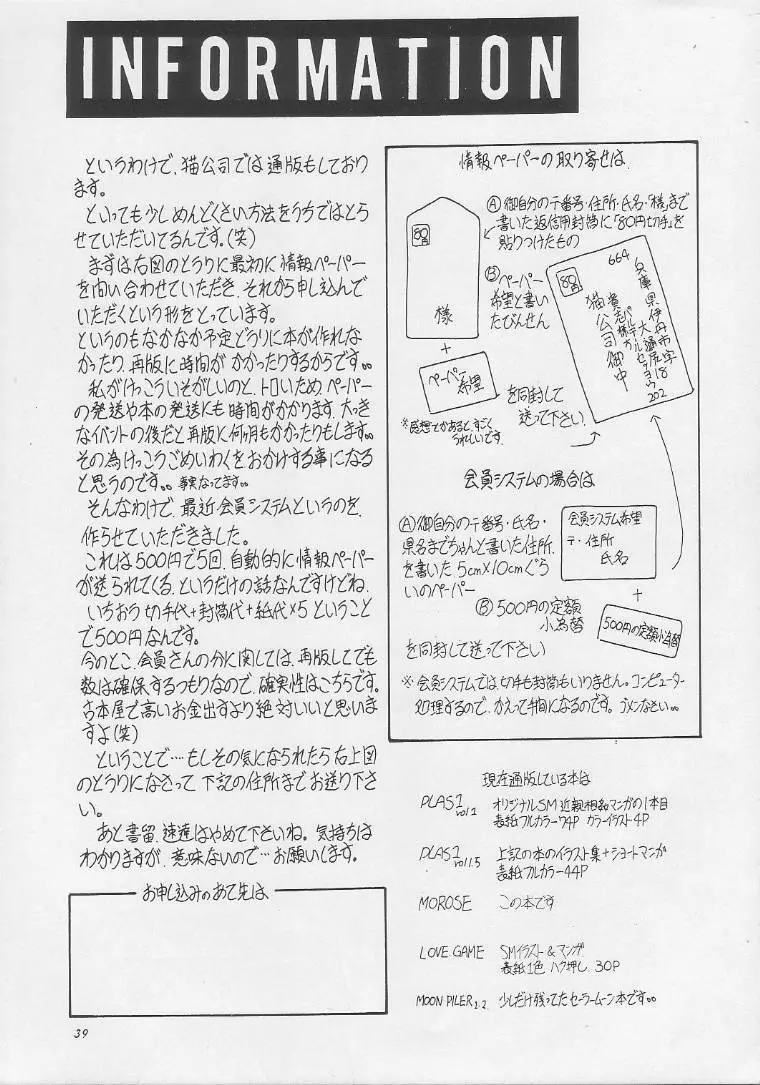 INFORMATION
というわけで、猫公司では通販もしており
ます。
といっても少しめんどくさい方法をうちではとら
せていただいてるんです。(笑)
まずは右図のとうりに最初に情報ペーパー
を問い合わせていただき、それから申し込んで
いただくという形をとっています。
というのもなかなか予定どうりに本が作れな
かったり、再版に時間がかかったりするからです。。
私がけっこういそがしいのと、トロいため、ペーパー
の発送や本の発送にも時間がかかります。大っき
なイベントの後だと再版に何ヶ月もかかったりもします。。
その為けっこうごめいわくをおかけする事になる
と思うのです。。事実なってます。。
そんなわけで、最近会員システムというのを、
作らせていただきました。
これは500円で5回、自動的に情報ペーパー
が送られてくる、というだけの話なんですけどね、
いちおう切手代+封筒代+紙代×5ということ
で500円なんです。
今のとこ、会員さんの分に関しては、再版してでも
数は確保するつもりなので、確実性はこちらです。
古本屋で高いお金出すより絶対いいと思いま
すよ(笑)
ということで…もしその気になられたら右上図
のとうりになさって下記の住所までお送り下さ
い。
あと書留、速達はやめて下さいね。気持ちは
わかりますが、意味ないので…お願いします。
お申し込みのあて先は
39
情報ペーパーの取り寄せは
Ⓐ御自分の〒番号・住所・氏名・「様」まで
書いた返信用封筒に「80円切手」を
貼りつけたもの
80
様
+
Ⓑペーパー
希望と書い
たびんせん
ペーパー
希望
を同封して
送って下さい
※感想とかあると、すごく
うれしいです。
80
664
兵庫県伊丹市
大鹿字
18
202
猫公司御中
会員システムの場合は
Ⓐ御自分の〒番号・氏名・
県名までちゃんと書いた住所、
を書いた5cm×10cmぐら
いのペーパー
会員システム希望
〒・住所
氏名
+
Ⓑ500円の定額
小為替
500円の定額小為替
を同封して送って下さい
※会員システムでは、切手も封筒もいりません。コンピューター
処理するので、かえって手間になるのです。ゴメンなさい。。
現在通販している本は
PLAS1 vol.1 オリジナルSM近親相姦マンガの1本目
表紙フルカラー74P カラーイラスト4P
PLAS1 vol1.5 上記の本のイラスト集+ショートマンガ
表紙フルカラー44P
MOROSE この本です
LOVE GAME SMイラスト&マンガ
表紙1色 ハク押し 30P
MOON PILER 1.2 少しだけ残ってたセーラームーン本です。。